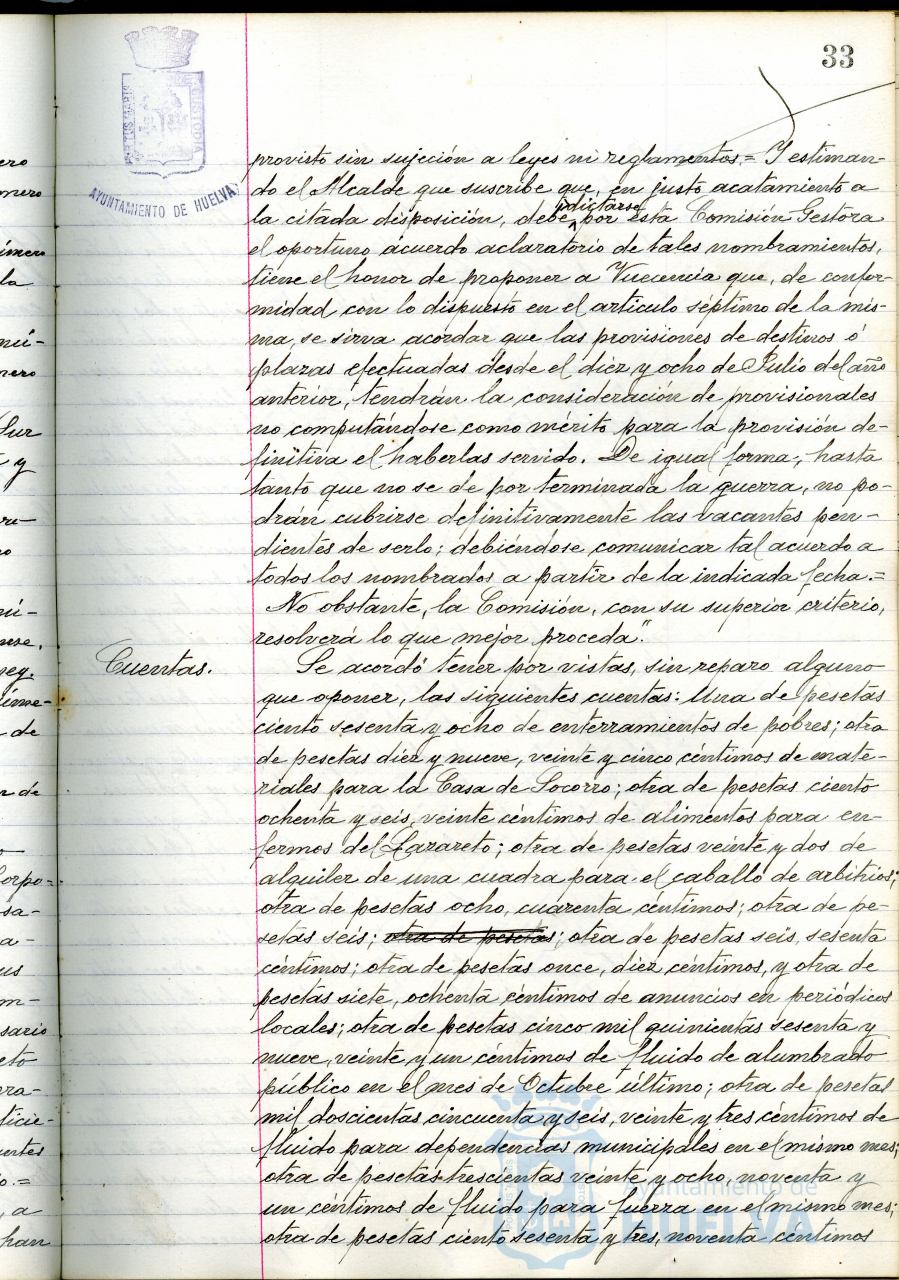 33
PORTUS MARIS
CUSTODIA
AYUNTAMIENTO DE HUELVA
provisto sin sujeción a leyes ni reglamentos.= Y estiman-
do el Alcalde que suscribe que, en justo acatamiento a
la citada disposición, debe dictarse por esta Comisión Gestora
el oportuno acuerdo aclaratorio de tales nombramientos,
tiene el honor de proponer a Vuecencia que, de confor-
midad con lo dispuesto en el articulo séptimo de la mis-
ma, se sirva acordar que las provisiones de destinos ó
plazas efectuadas desde el diez y ocho de Julio del año
anterior, tendrán la consideración de provisionales
no computándose como mérito para la provisión de-
finitiva el haberlas servido. De igual forma, hasta
tanto que no se de por terminada la guerra, no po-
drán cubrirse definitivamente las vacantes pen-
dientes de serlo; debiéndose comunicar tal acuerdo a
todos los nombrados a partir de la indicada fecha.=
No obstante, la Comisión, con su superior criterio,
resolverá lo que mejor proceda."
Cuentas.
Se acordó tener por vistas, sin reparo alguno
que oponer, las siguientes cuentas: Una de pesetas
ciento sesenta y ocho de enterramientos de pobres; otra
de pesetas diez y nueve, veinte y cinco céntimos de mate-
riales para la Casa de Socorro; otra de pesetas ciento
ochenta y seis, veinte céntimos de alimentos para en-
fermos del Lazareto; otra de pesetas veinte y dos de
alquiler de una cuadra para el caballo de arbitrios;
otra de pesetas ocho, cuarenta céntimos; otra de pe-
setas seis; otra de pesetas; otra de pesetas seis, sesenta
céntimos; otra de pesetas once, diez céntimos, y otra de
pesetas siete, ochenta céntimos de anuncios en periódicos
locales; otra de pesetas cinco mil quinientas sesenta y
nueve, veinte y un céntimos de fluido de alumbrado
público en el mes de Octubre último; otra de pesetas
mil doscientas cincuenta y seis, veinte y tres céntimos de
fluido para dependencias municipales en el mismo mes;
otra de pesetas trescientas veinte y ocho, noventa y
un céntimos de fluido para fuerza en el mismo mes;
otra de pesetas ciento sesenta y tres, noventa céntimos
Ayuntamiento de
HUELVA